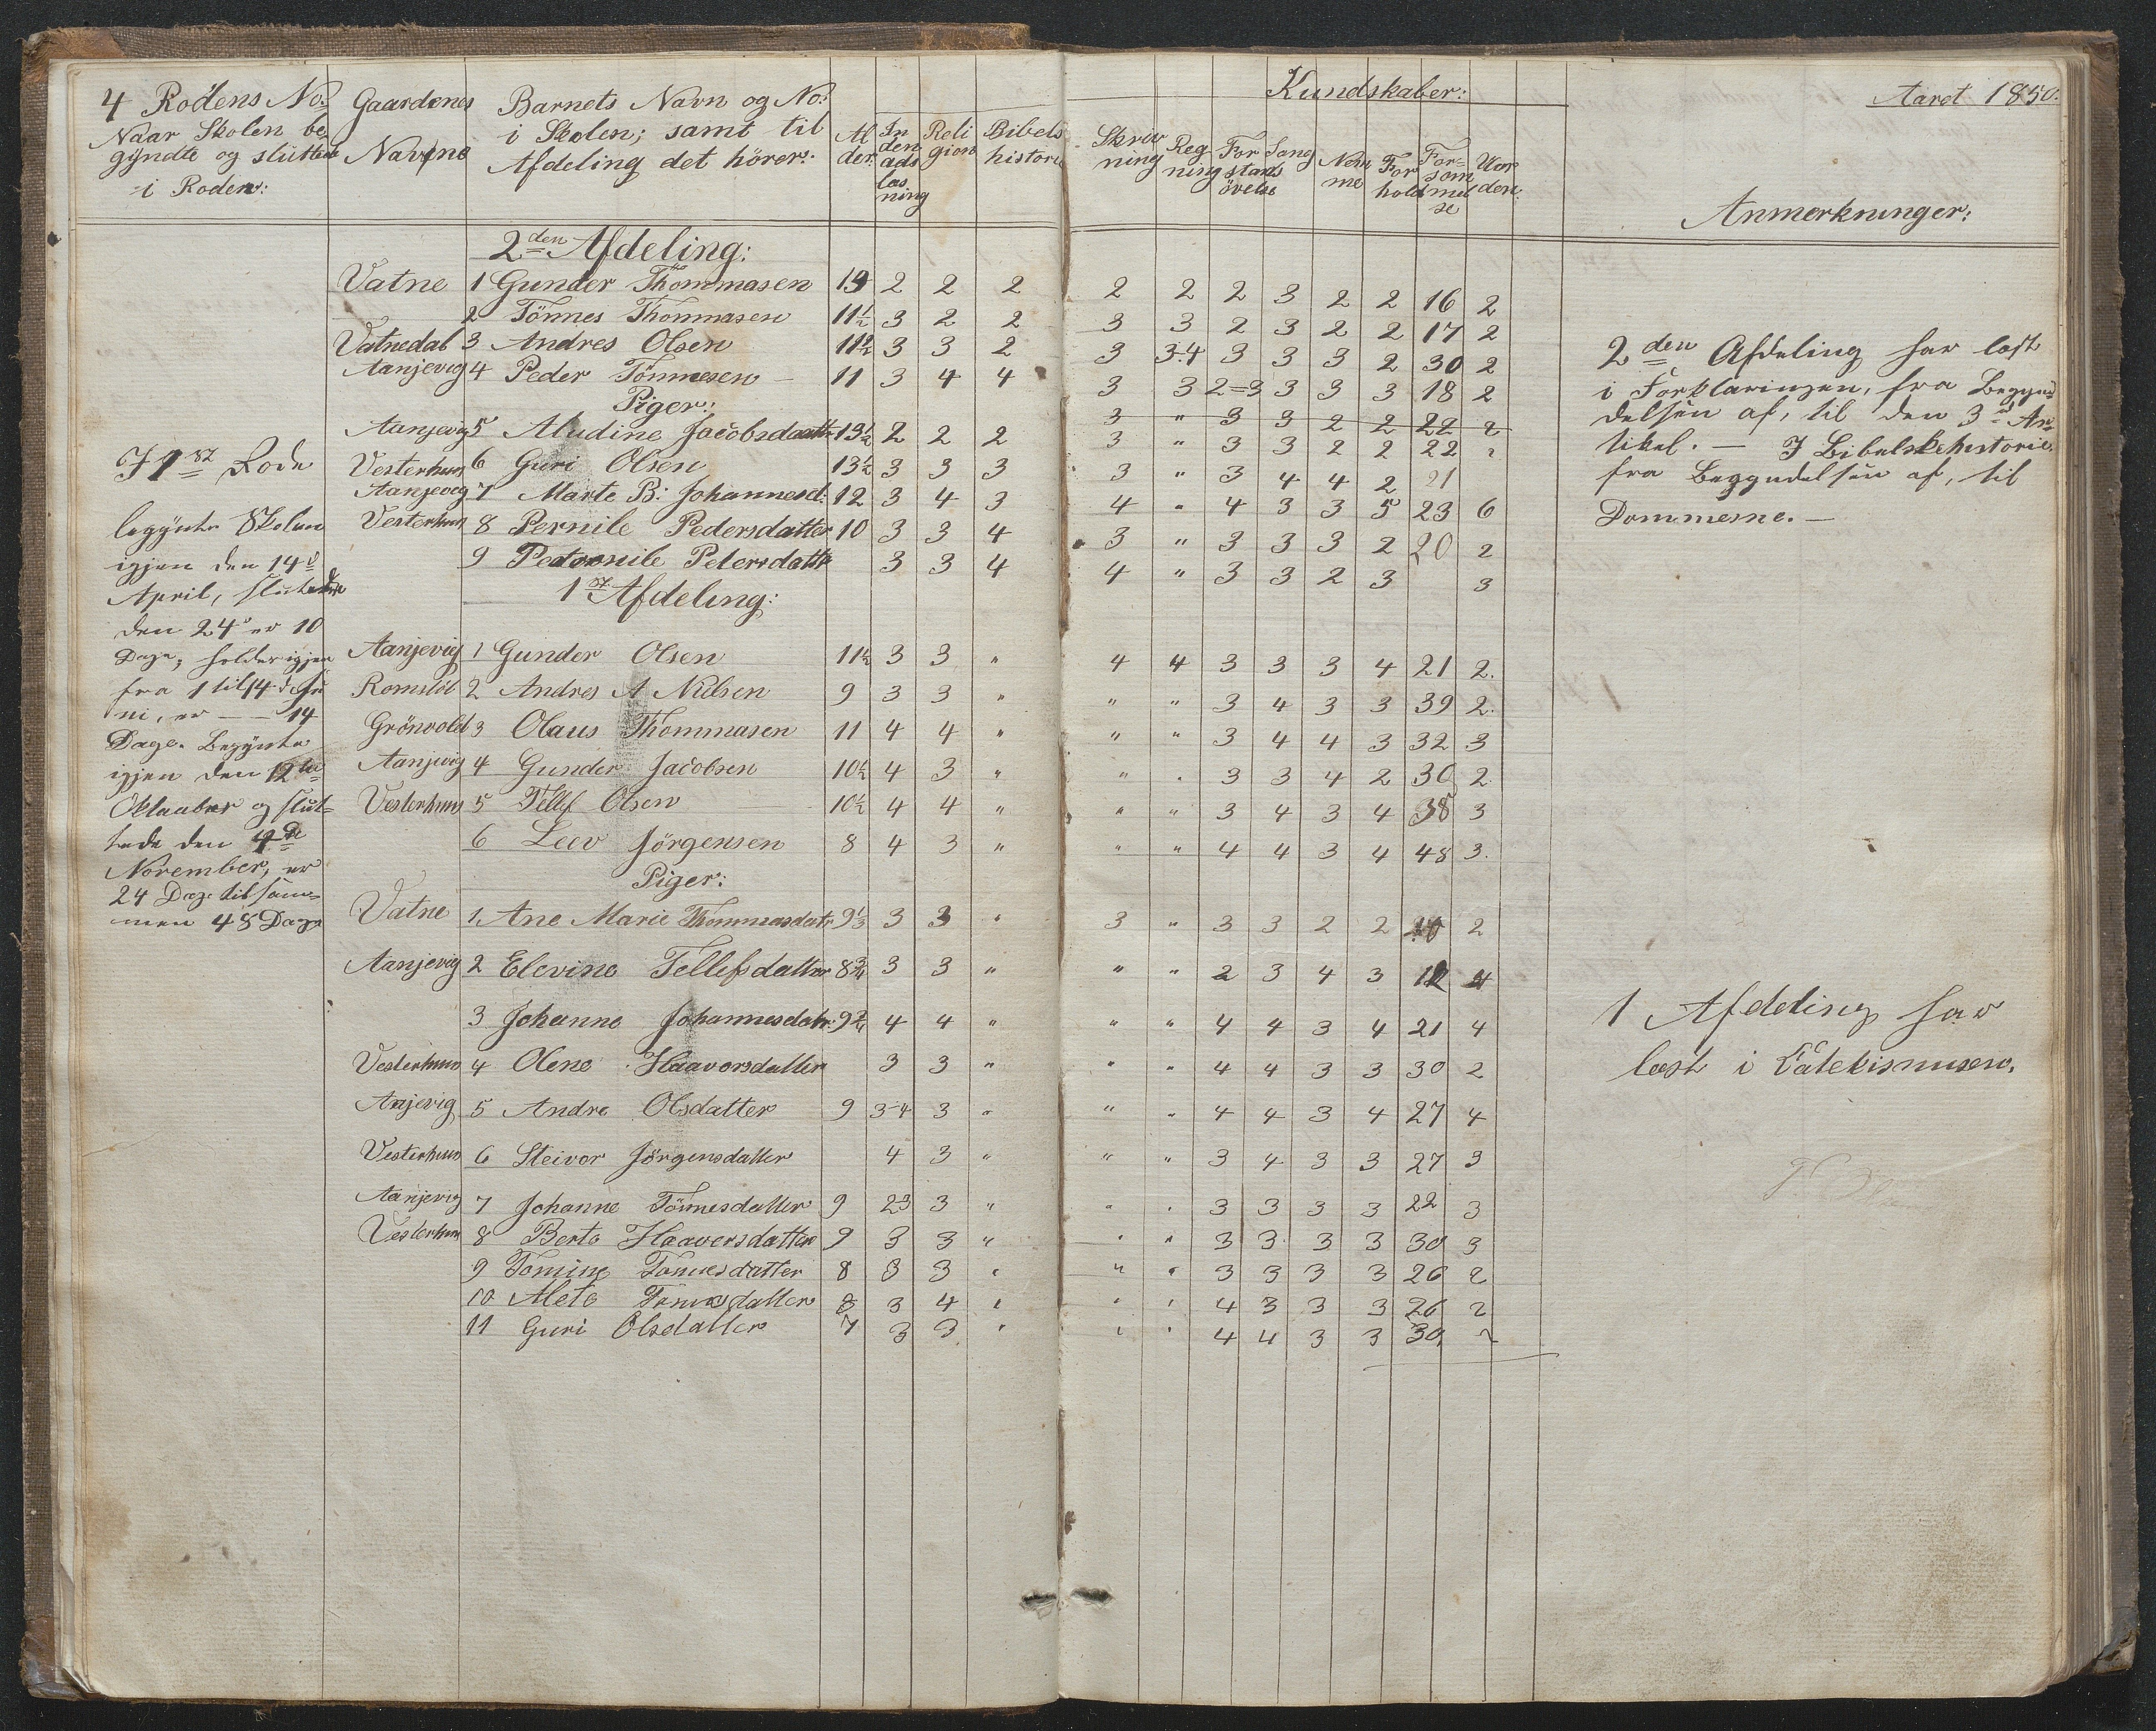 4 Rodens No: Gaardenes Barnets Navn og No: Kundskaber: Aaret 1850.
Naar Skolen be Navne i Skolen; samt til Al In Reli Bibels Skriv Reg For Sang Nem For For= Vor
gÿndte og slüttede Afdeling det hörer: der: den gion historie ning ning stands me hold som den:
i Roden: ads övelse mel
læs se
ning
Anmerkninger:
2den Afdeling:
Vatne 1 Gunder Thommasen 2 2 2 2 2 2 3 2 2 16 2
2 Tönnes Thommasen 11½ 3 2 2 3 3 2 3 2 2 17 2
Vatnedal 3 Andres Olsen 11½ 3 3 2 3 3-4 3 3 3 2 30 2
Aanjevig 4 Peder Tönnesen 11 3 4 4 3 3 2=3 3 3 3 18 2
Piger:
3 " 3 3 2 2 22 2
Aanjevig 5 Aludine Jacobsdattr 13½ 2 2 2 3 " 3 3 2 2 22 2
Vesterhuus 6 Guri Olsen 13½ 3 3 3 3 " 3 4 4 2 21
Aanjevig 7 Marte B: Johannesd: 12 3 4 3 4 " 4 3 3 5 23 6
Vesterhuus 8 Pernile Pedersdatter 10 3 3 4 3 " 3 3 3 2 20 2
9 Petronile Petersdattr 3 3 4 4 " 3 3 2 3 3
2den Afdeling har læst
i Forklaringen, fra Begyn=
delsen af, til den 3d Ar=
tikel. — I Bibelskehistorie
fra Begyndelsen af, til
Dommerne. —
1st Afdeling:
Aanjevig 1 Gunder Olsen 11½ 3 3 " 4 4 3 3 3 4 21 2.
Romslöl 2 Andres A Nilsen 9 3 3 " " " 3 4 3 3 39 2.
Grönvold 3 Olaus Thommasen 11 4 4 " " " 3 4 4 3 32 3
Aanjevig 4 Gunder Jacobsen 10½ 4 3 " " " 3 3 4 2 30 2.
Vesterhuus 5 Tellef Olsen 10½ 4 4 " " " 3 4 3 4 38 3
6 Leev Jörgensen 8 4 3 " " " 4 4 3 4 48 3.
Piger:
Vatne 1. Ane Marie Thommasdatr 9⅓ 3 3 " 3 " 3 3 2 2 2
Aanjevig 2 Elevine Tellefsdatter 8¾ 3 3 " " " 2 3 4 3 12 4
3 Johanne Johannesdatr: 4 4 " " " 4 4 3 4 21 4
Vesterhuus 4 Olene Haavorsdatter 3 3 " " " 4 4 3 3 30 2
Anjevig 5 Andre Olsdatter 9 3-4 3 " " " 4 4 3 4 27 4
Vesterhuus 6 Steivor Jörgensdatter 4 3 " " " 3 4 3 3 27 3
Aanjevig 7 Johanne Tönnesdatter 9 23 3 " " " 3 3 3 3 22 3
Vesterhuus 8 Berte Haaversdatter 9 3 3 " " " 3 3 3 3 30 3
9 Tomine Tönnesdatter 8 3 3 " " " 3 3 3 3 26 2
10 Mete Tönnesdatter 8 3 4 " " " 4 3 3 3 26 2
11 Guri Olsdatter 7 3 3 " " " 4 4 3 3 30 2
1 Afdeling har
læst i Catekismusen.
I 1st Rode
begÿnte Skolen
igjen den 14d
April, sluttede
den 24d er 10
Dage, holder igjen
fra 1 til 14d Ju
ni, er — 14
Dage. Begÿnte
igjen den 12te
Oktaaber og slut=
tede den 4de
November, er
24 Dage tilsam=
men 48 Dage